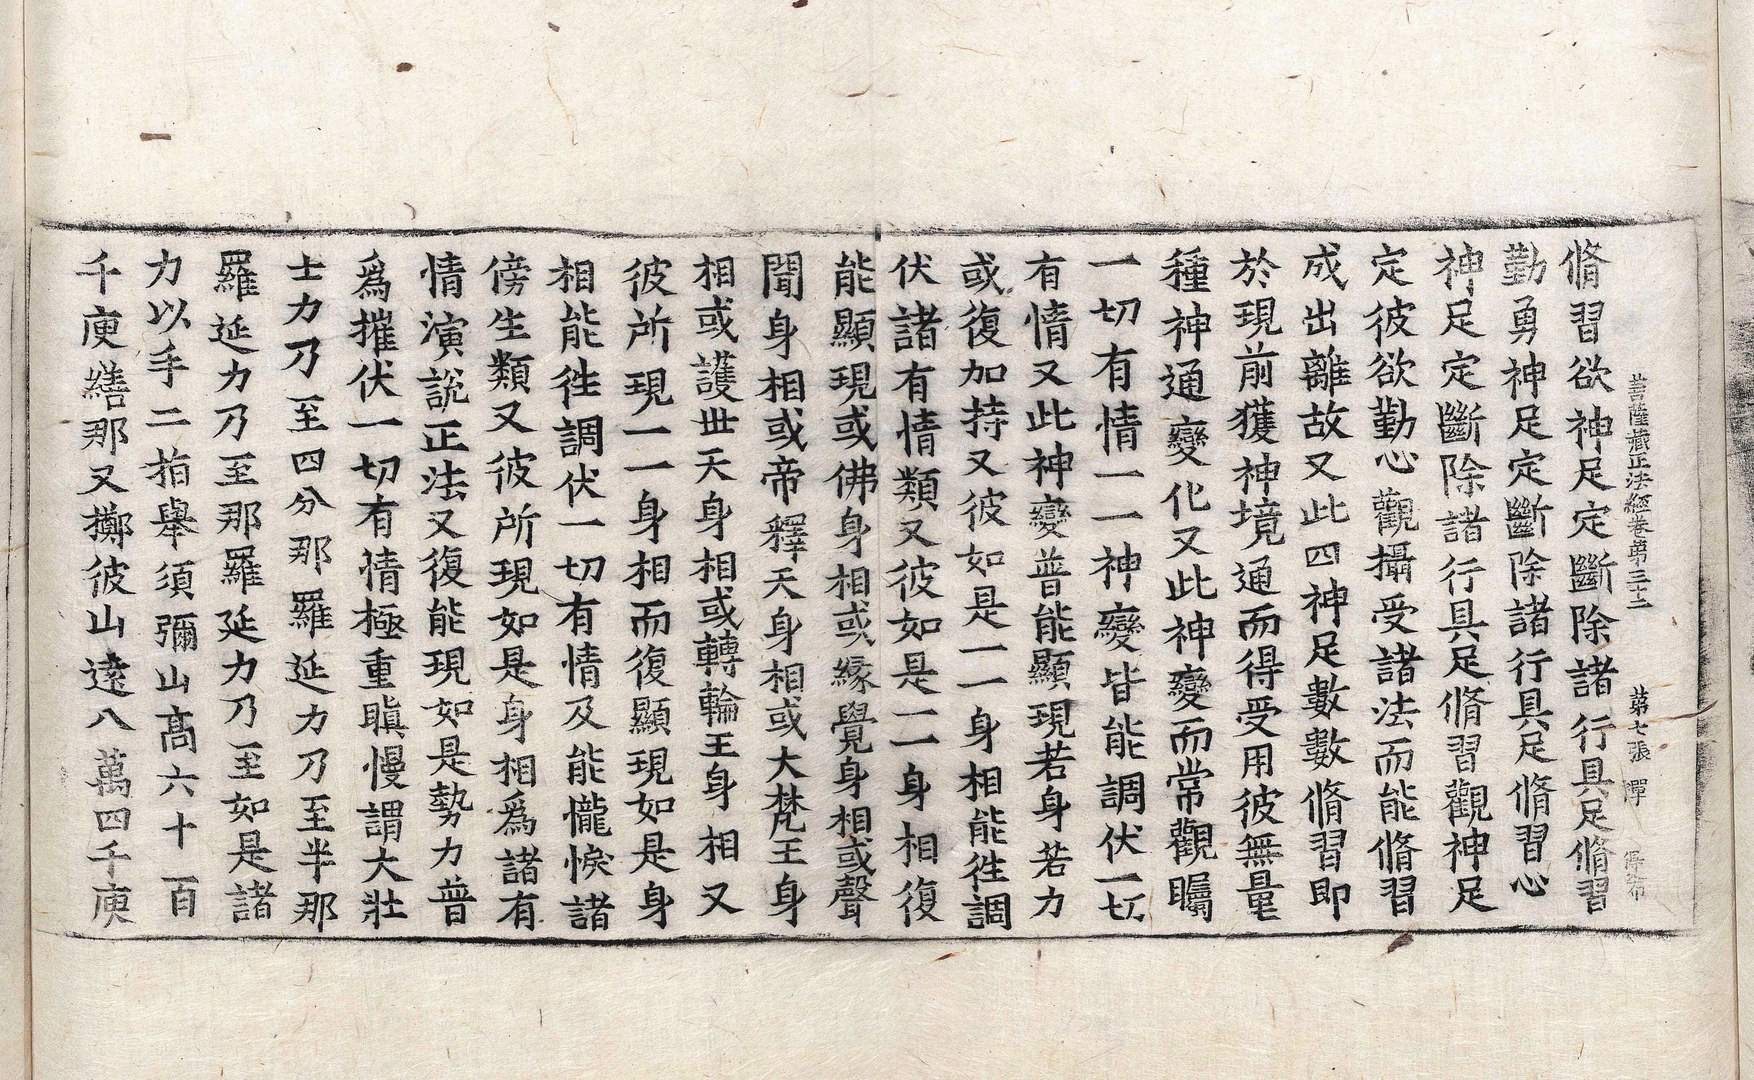 菩薩藏正法經卷第三十二 第七張 彈
脩習欲神足定斷除諸行具足脩習
勤勇神足定斷除諸行具足脩習心
神足定斷除諸行具足脩習觀神足
定彼欲勤心觀攝受諸法而能脩習
成出離故又此四神足數數脩習即
於現前獲神境通而得受用彼無量
種神通變化又此神變而常觀矚
一切有情一一神變皆能調伏一切
有情又此神變普能顯現若身若力
或復加持又彼如是一一身相能徃調
伏諸有情類又彼如是一一身相復
能顯現或佛身相或緣覺身相或聲
聞身相或帝釋天身相或大梵王身
相或護世天身相或轉輪王身相又
彼所現一一身相而復顯現如是身
相能徃調伏一切有情及能𢤱悷諸
傍生類又彼所現如是身相爲諸有
情演說正法又復能現如是勢力普
爲摧伏一切有情極重瞋慢謂大壯
士力乃至四分那羅延力乃至半那
羅延力乃至那羅延力乃至如是諸
力以手二指舉須彌山高六十百
千庾繕那又擲彼山遠八萬四千庾